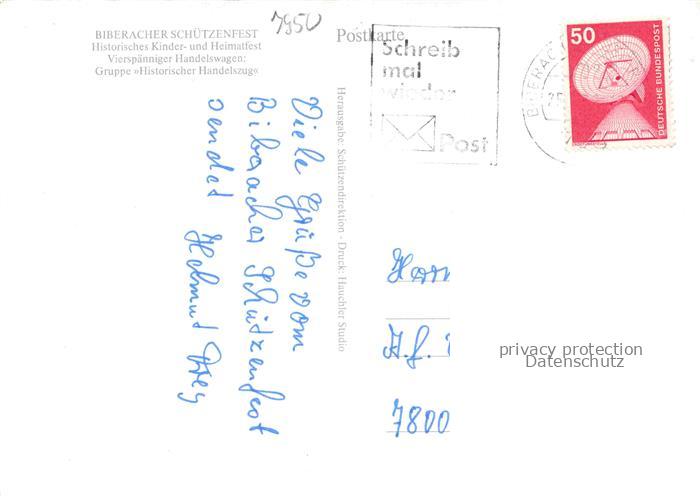 7950
BIBERACHER SCHÜTZENFEST
Historisches Kinder- und Heimatfest
Vierspänniger Handelswagen:
Gruppe »Historischer Handelszug«
Postkarte
Schreib
mal
wieder
Post
BIBERAC
50
DEUTSCHE BUNDESPOST
Herausgabe: Schützendirektion · Druck: Hauchler Studio
Viele Grüße vom
Biberacher Schützenfest
sendet Helmut
7800
privacy protection
Datenschutz